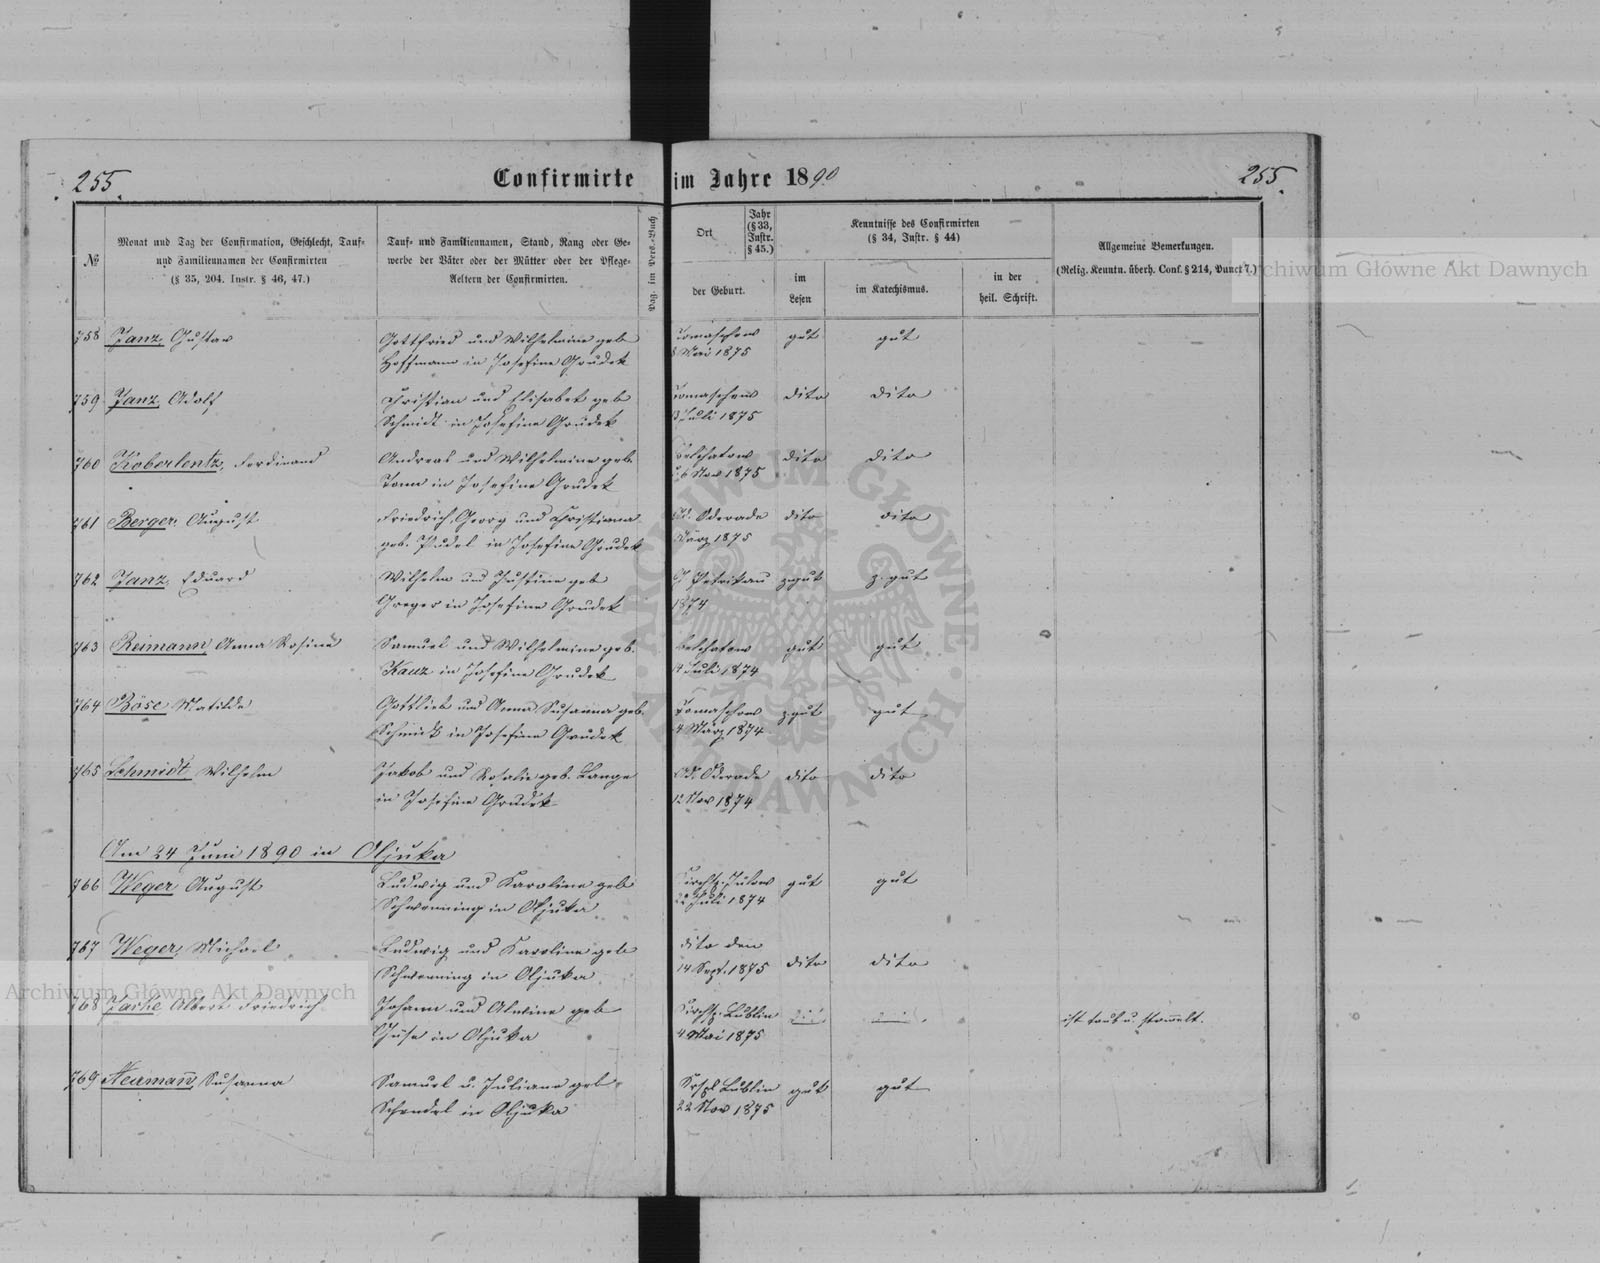 255.
Confirmirte im Jahre 1890
255.
№
Monat und Tag der Confirmation, Geschlecht, Tauf=
und Familiennamen der Confirmirten
(§ 35, 204. Instr. § 46, 47.)
Tauf= und Familiennamen, Stand, Rang oder Ge=
werbe der Väter oder der Mütter oder der Pflege=
Aeltern der Confirmirten.
Pag. im Pers.=Buch
Ort
Jahr
(§ 33,
Instr.
§ 45.)
der Geburt.
Kenntnisse des Confirmirten
(§ 34, Instr. § 44)
im
Lesen
im Katechismus.
in der
heil. Schrift.
Allgemeine Bemerkungen.
(Relig. Kenntn. überh. Conf. § 214, Punct 7.)
758 Janz, Gustav
Gottfried und Wilhelmine geb
Hoffmann in Josefine Grudek
Tomaschow
8 Mai 1875
gut
gut
759 Janz, Adolf
Christian und Elisabet geb
Schmidt in Josefine Grudek
Tomaschow
Juli 1875
dito
dito
760 Koberlentz, Ferdinand
Andreas und Wilhelmine geb.
Tonn in Josefine Grudek
Belchatow
6 Nov 1875
dito
dito
761 Berger, August
Friedrich Georg und Christiana
geb. Pudel in Josefine Grudek
Oderade
März 1875
dito
dito
762 Janz, Eduard
Wilhelm und Justine geb
Greger in Josefine Grudek
Petrikau
1874
z. gut
z. gut
763 Reimann, Anna Rosine
Samuel und Wilhelmine geb.
Kauz in Josefine Grudek
Belchatow
Juli 1874
gut
gut
764 Böse, Matilde
Gottlieb und Anna Susanna geb.
Schmidt in Josefine Grudek
Tomaschow
4 März 1874
z. gut
gut
765 Schmidt, Wilhelm
Jakob und Rosalie geb. Lange
in Josefine Grudek
Oderade
12 Nov 1874
dito
dito
Am 24 Juni 1890 in Oljuka
766 Weger, August
Ludwig und Karoline geb
Schwenning in Oljuka
Kirchsp.
22 Juli 1874
gut
gut
767 Weger, Michael
Ludwig und Karoline geb
Schwenning in Oljuka
dito den
14 Sept. 1875
dito
dito
768 Jaske, Albert Friedrich
Johann und Alwine geb
in Oljuka
Kirchsp. Lublin
4 Mai 1875
ist taub u.
769 Neumann, Susanna
Samuel u. Juliane geb.
Schendel in Oljuka
Krspl Lublin
22 Nov 1875
gut
gut
Archiwum Główne Akt Dawnych
Archiwum Główne Akt Dawnych
ARCHIWUM GŁÓWNE AKT DAWNYCH